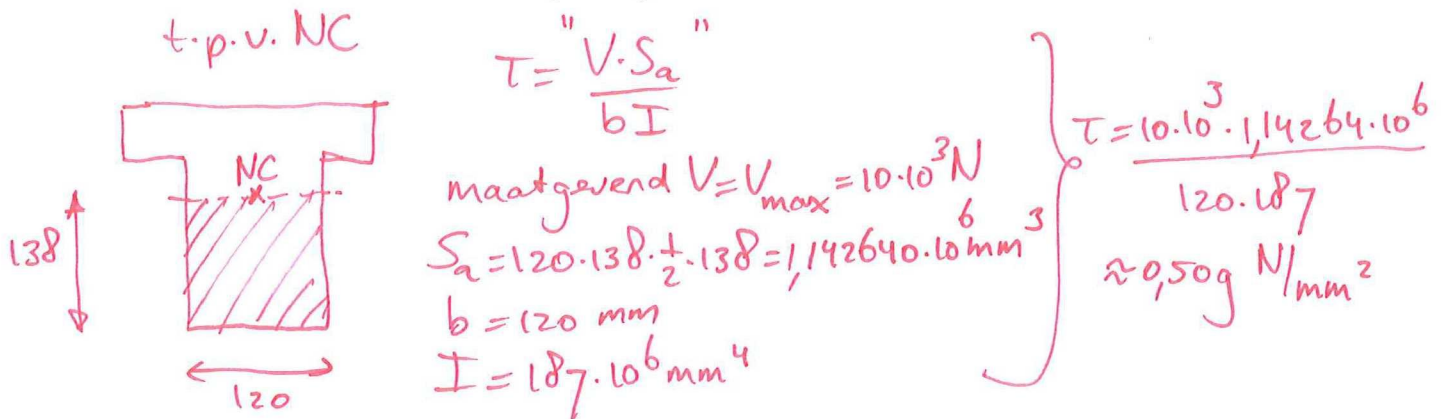 t.p.v. NC
NC
138
120
τ = "V·Sa" / bI
maatgevend V = Vmax = 10·10³ N
Sa = 120·138·½·138 = 1,142640·10⁶ mm³
b = 120 mm
I = 187·10⁶ mm⁴
τ = 10·10³·1,14264·10⁶ / 120·187
≈ 0,509 N/mm²